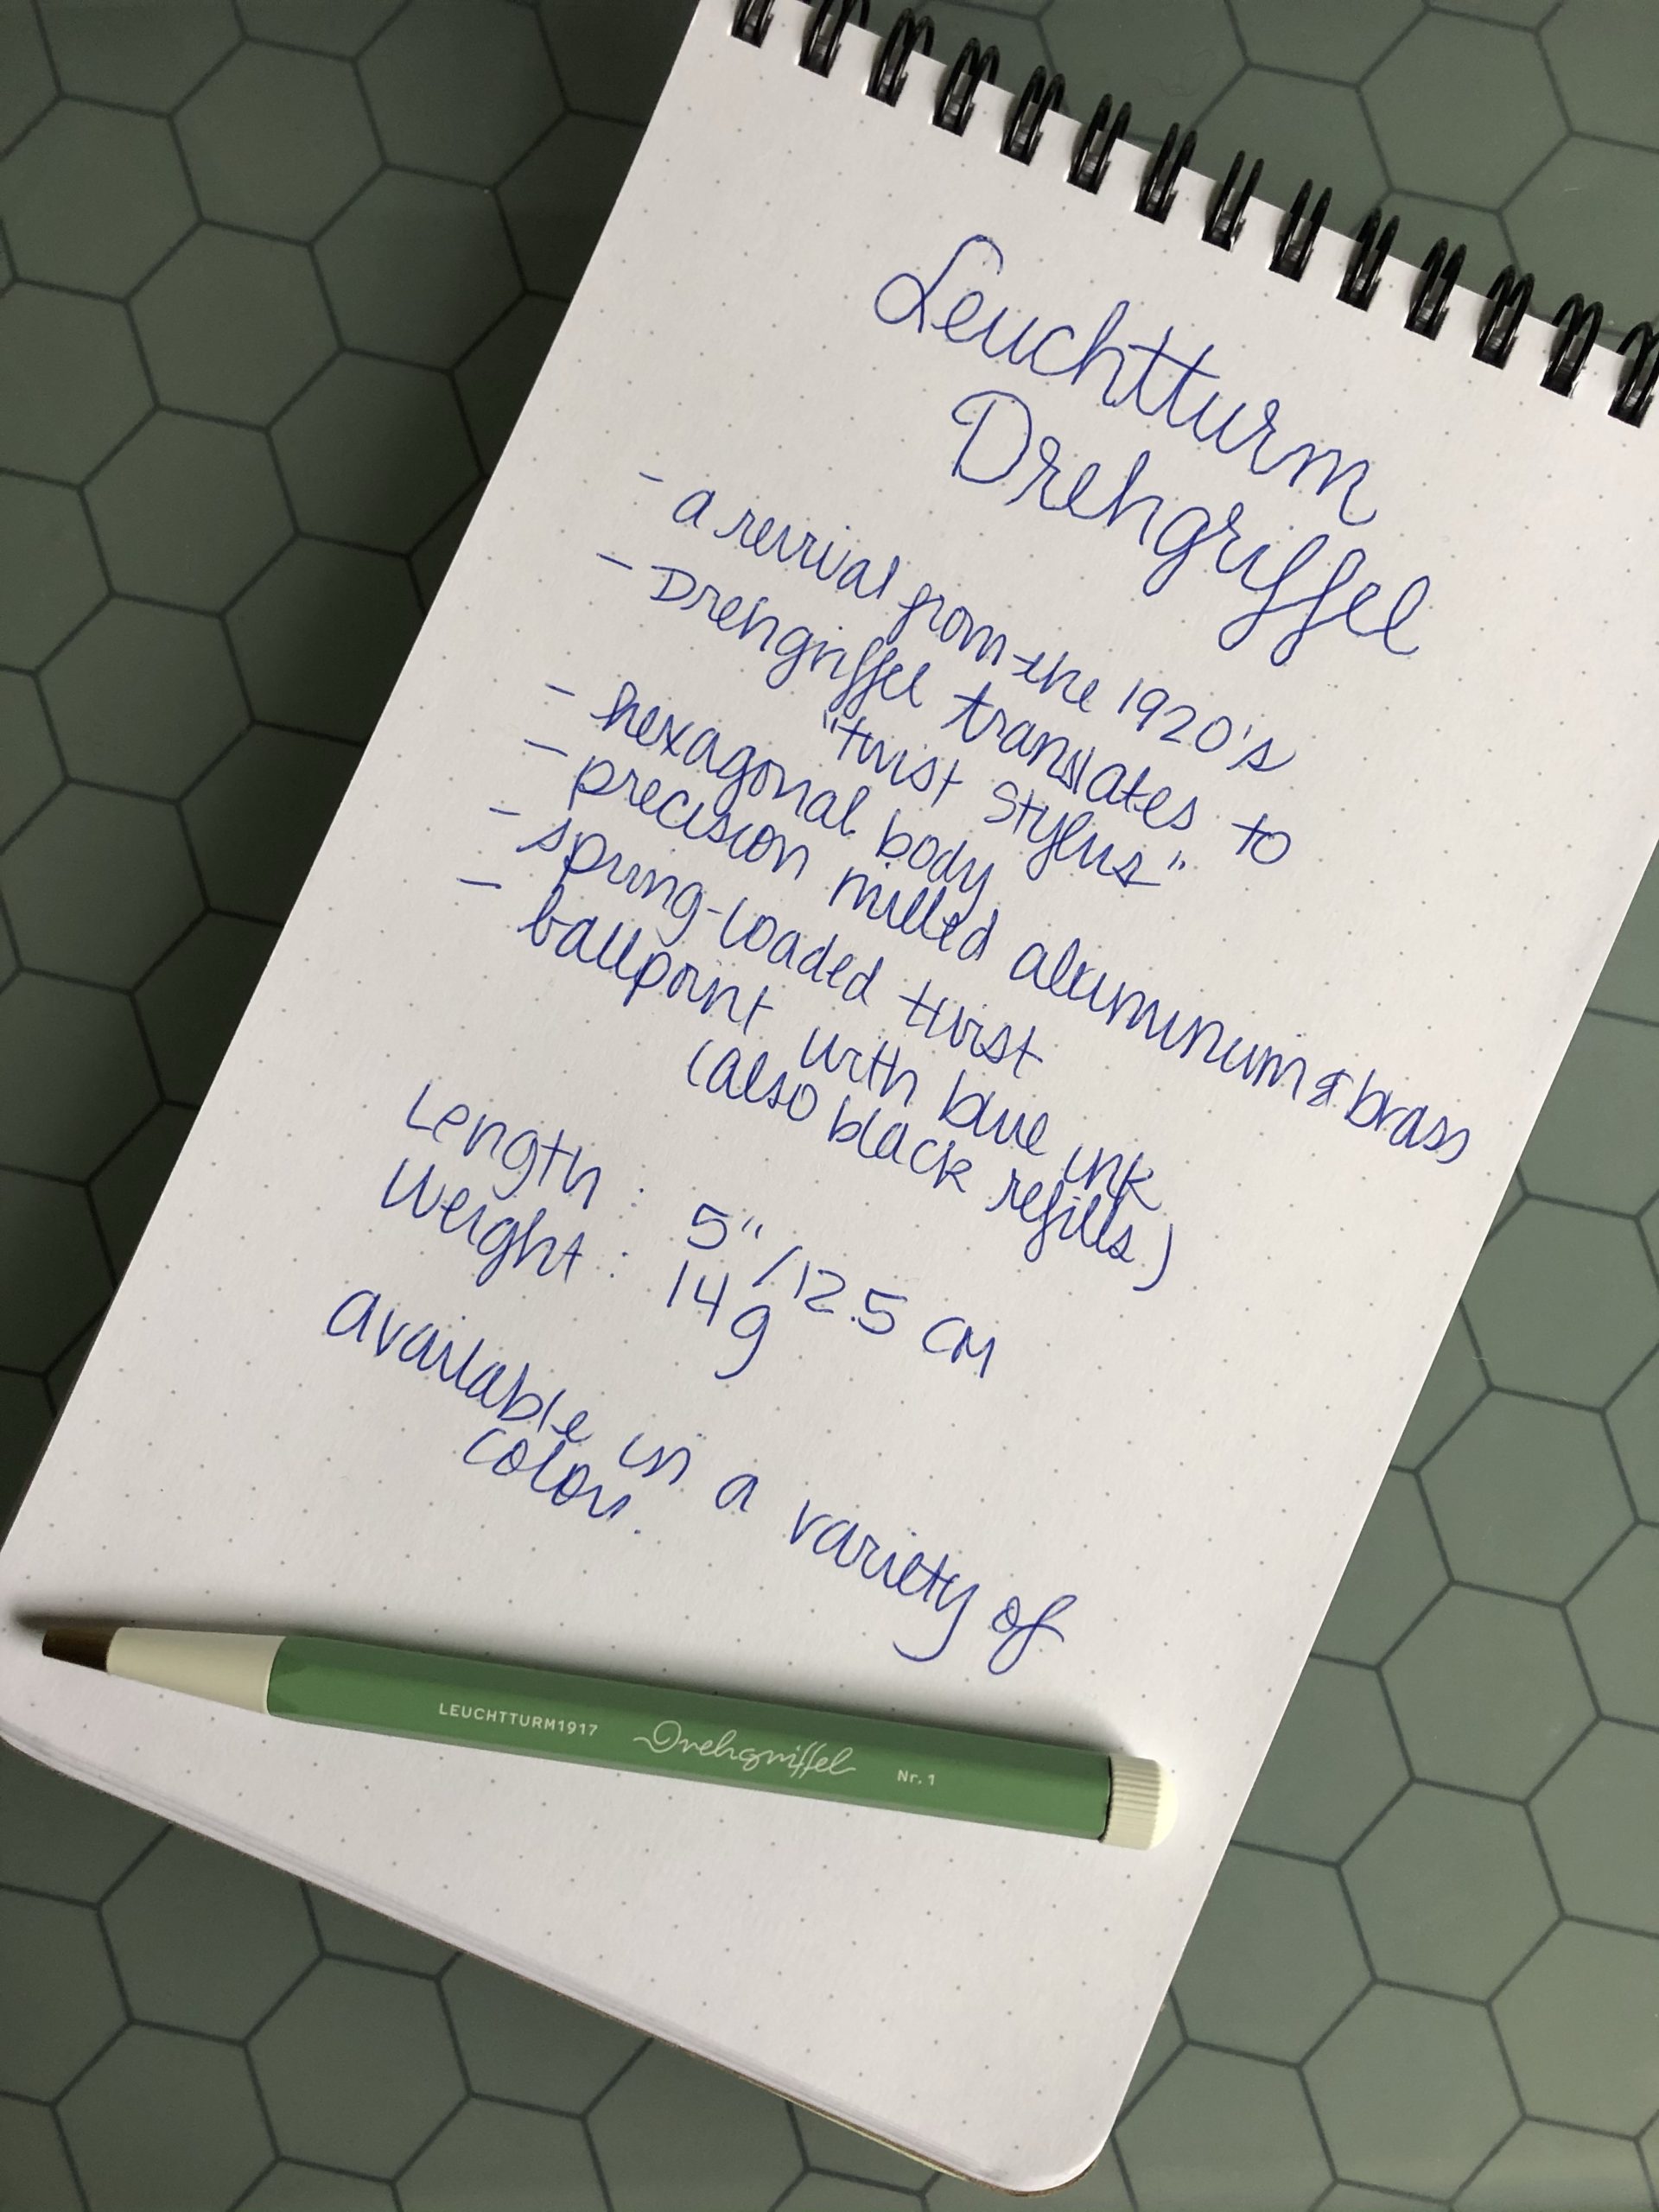 Leuchtturm
Drehgriffel
- a revival from the 1920's
- Drehgriffel translates to
"twist stylus"
- hexagonal body
- precision milled aluminum & brass
- spring-loaded twist
- ballpoint with blue ink
(also black refills)
Length: 5"/12.5 CM
Weight: 14g
available in a variety of
colors.
LEUCHTTURM1917 Drehgriffel Nr. 1